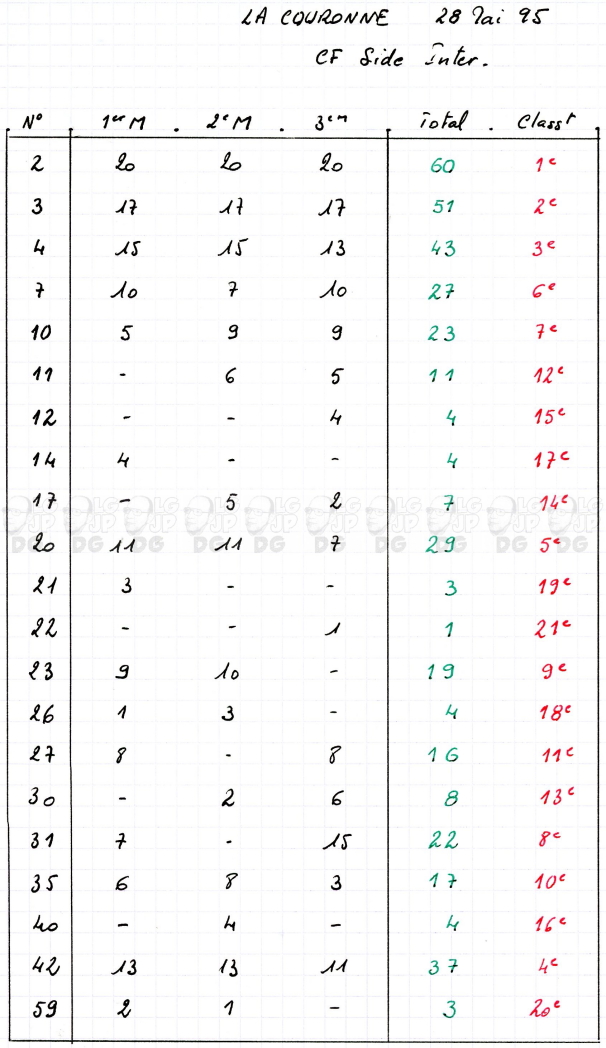 LA COURONNE 28 Mai 95
CF Side Inter.
N° 1er M 2e M 3e M Total Classt
2 20 20 20 60 1e
3 17 17 17 51 2e
4 15 15 13 43 3e
7 10 7 10 27 6e
10 5 9 9 23 7e
11 - 6 5 11 12e
12 - - 4 4 15e
14 4 - - 4 17e
17 - 5 2 7 14e
20 11 11 7 29 5e
21 3 - - 3 19e
22 - - 1 1 21e
23 9 10 - 19 9e
26 1 3 - 4 18e
27 8 - 8 16 11e
30 - 2 6 8 13e
31 7 - 15 22 8e
35 6 8 3 17 10e
40 - 4 - 4 16e
42 13 13 11 37 4e
59 2 1 - 3 20e